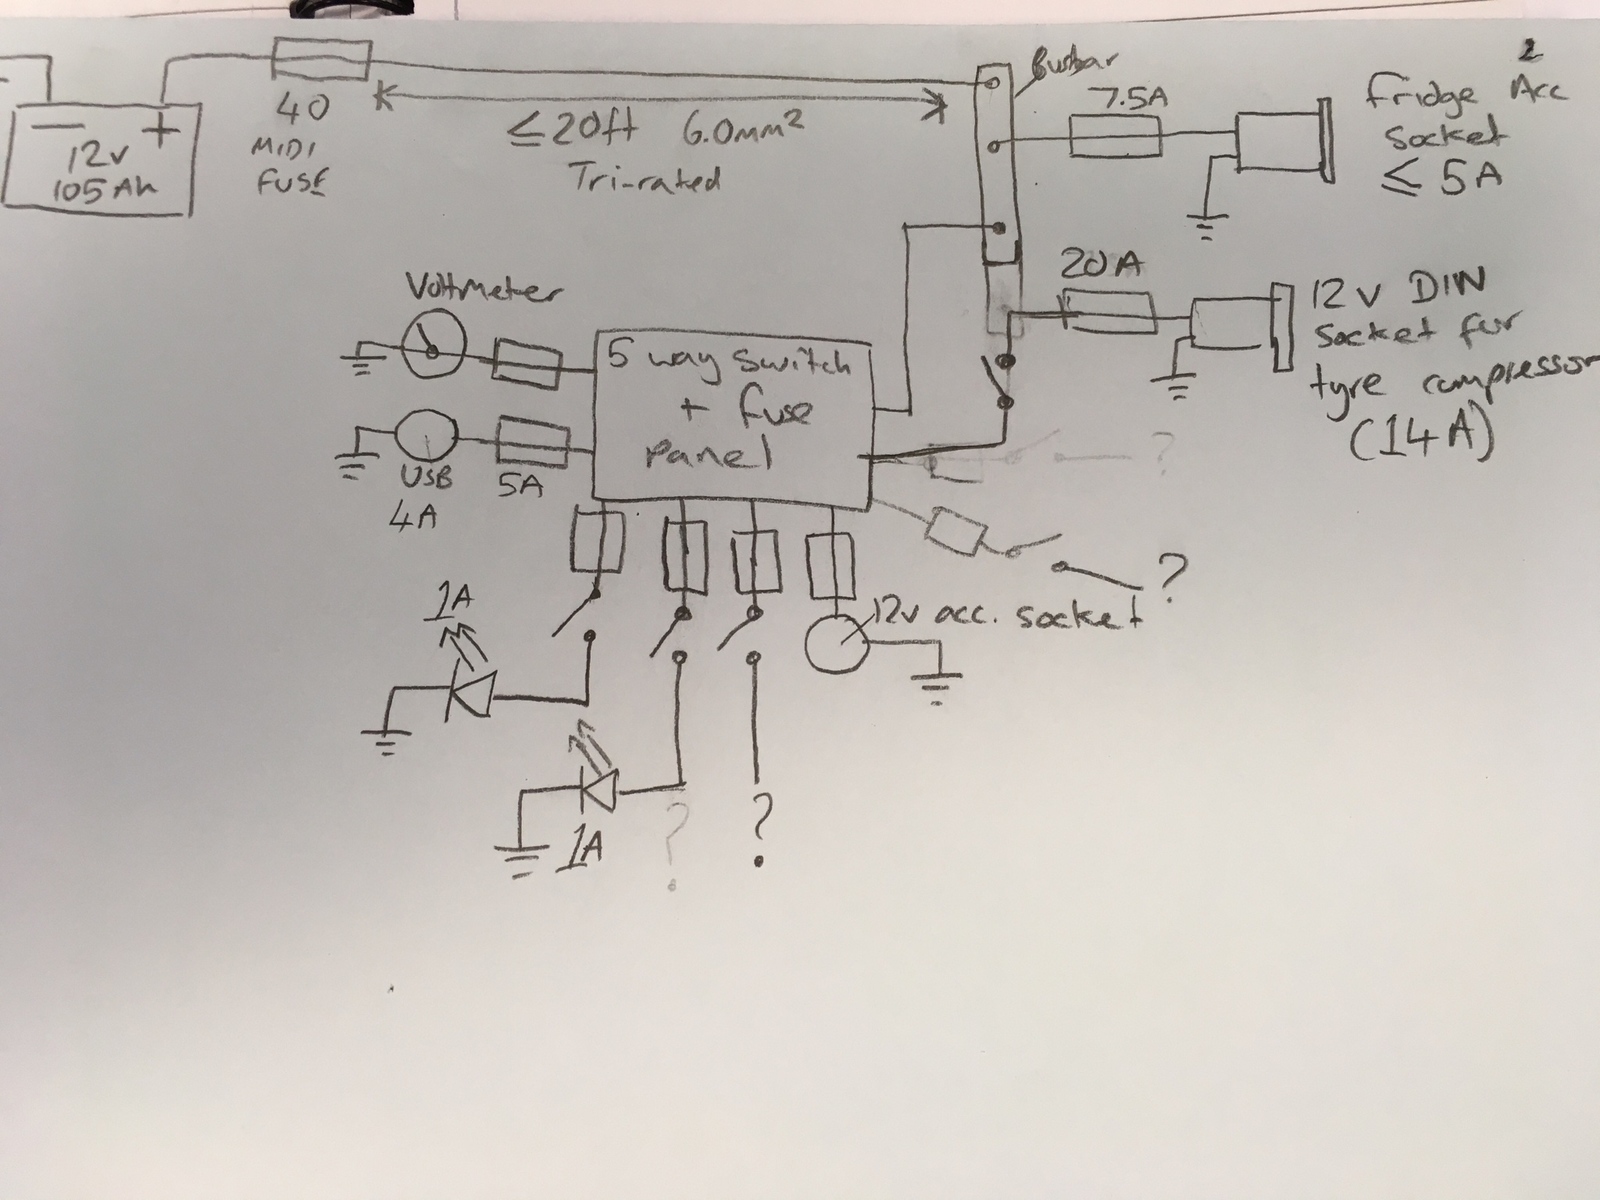 12v
105Ah
40
MIDI
FUSE
≤20ft 6.0mm²
Tri-rated
Busbar
7.5A
2
Fridge Acc
Socket
≤ 5A
20A
12v DIN
Socket for
tyre compressor
(14A)
Voltmeter
5 way switch
+ fuse
panel
USB
4A
5A
?
?
12v acc. socket
1A
1A
?
?